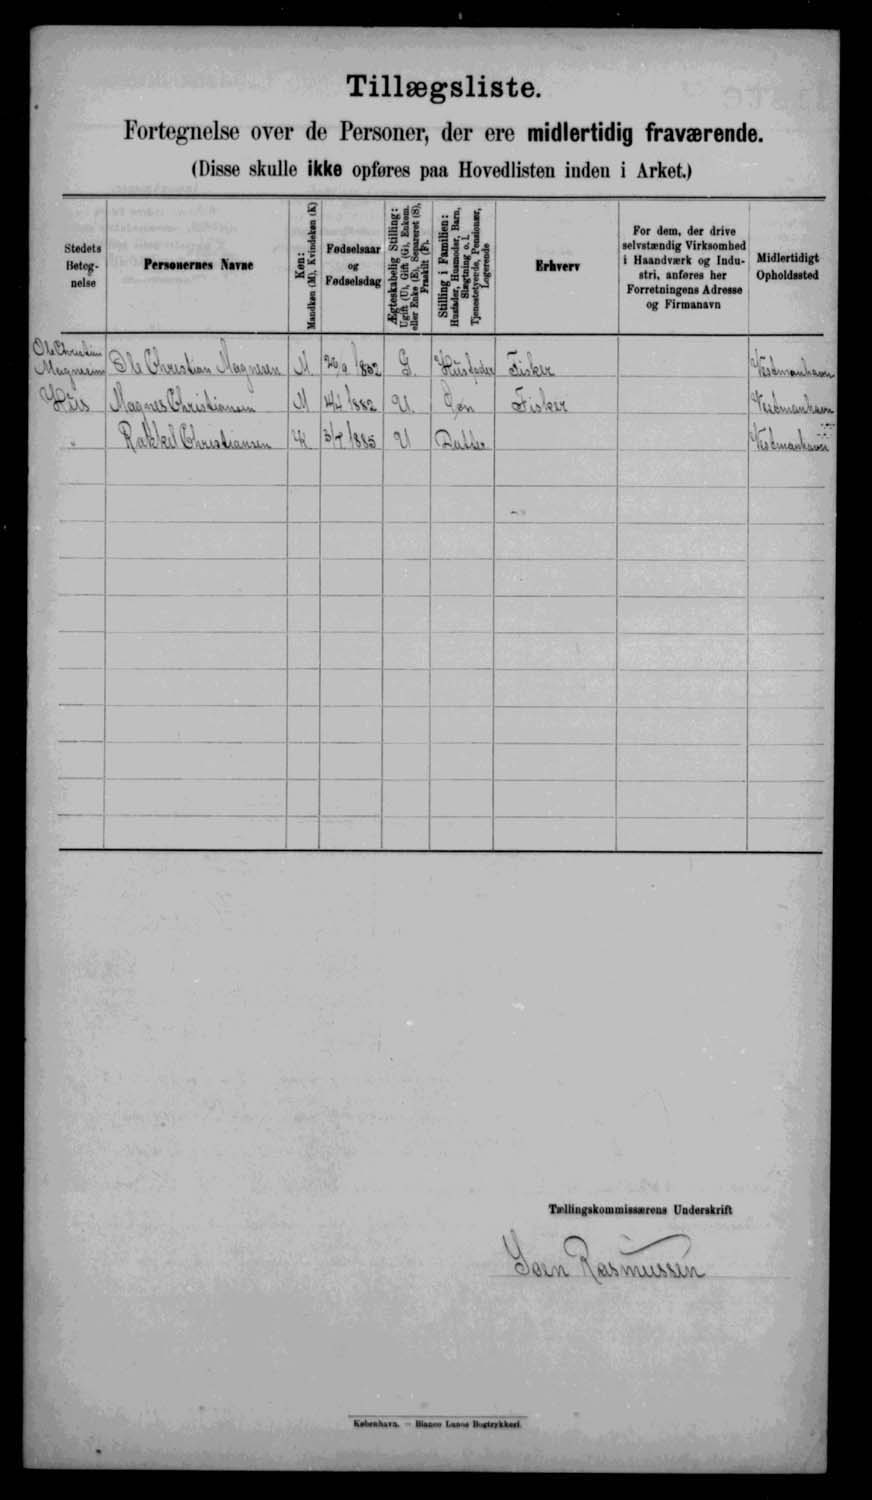 Tillægsliste.
Fortegnelse over de Personer, der ere midlertidig fraværende.
(Disse skulle ikke opføres paa Hovedlisten inden i Arket.)
Stedets Beteg-nelse
Personernes Navne
Køn:
Mandkøn (M), Kvindekøn (K)
Fødselsaar
og
Fødselsdag
Ægteskabelig Stilling:
Ugift (U), Gift (G), Enkem.
eller Enke (E), Separeret (S),
Fraskilt (F).
Stilling i Familien:
Husfader, Husmoder, Barn,
Slægtning o. l.
Tjenestetyende, Pensionær,
Logerende
Erhverv
For dem, der drive
selvstændig Virksomhed
i Haandværk og Indu-
stri, anføres her
Forretningens Adresse
og Firmanavn
Midlertidigt
Opholdssted
Ole Christian
Magnesens Ole Christian Magnesen M 1852 G. Husfader Fisker Vestmanhavn
Hus Magnes Christiansen M 1882 U. Søn Fisker Vestmanhavn
" Rakkel Christiansen K 1885 U Datter Vestmanhavn
Tællingskommissærens Underskrift
Rasmussen
København. — Bianco Lunos Bogtrykkeri.